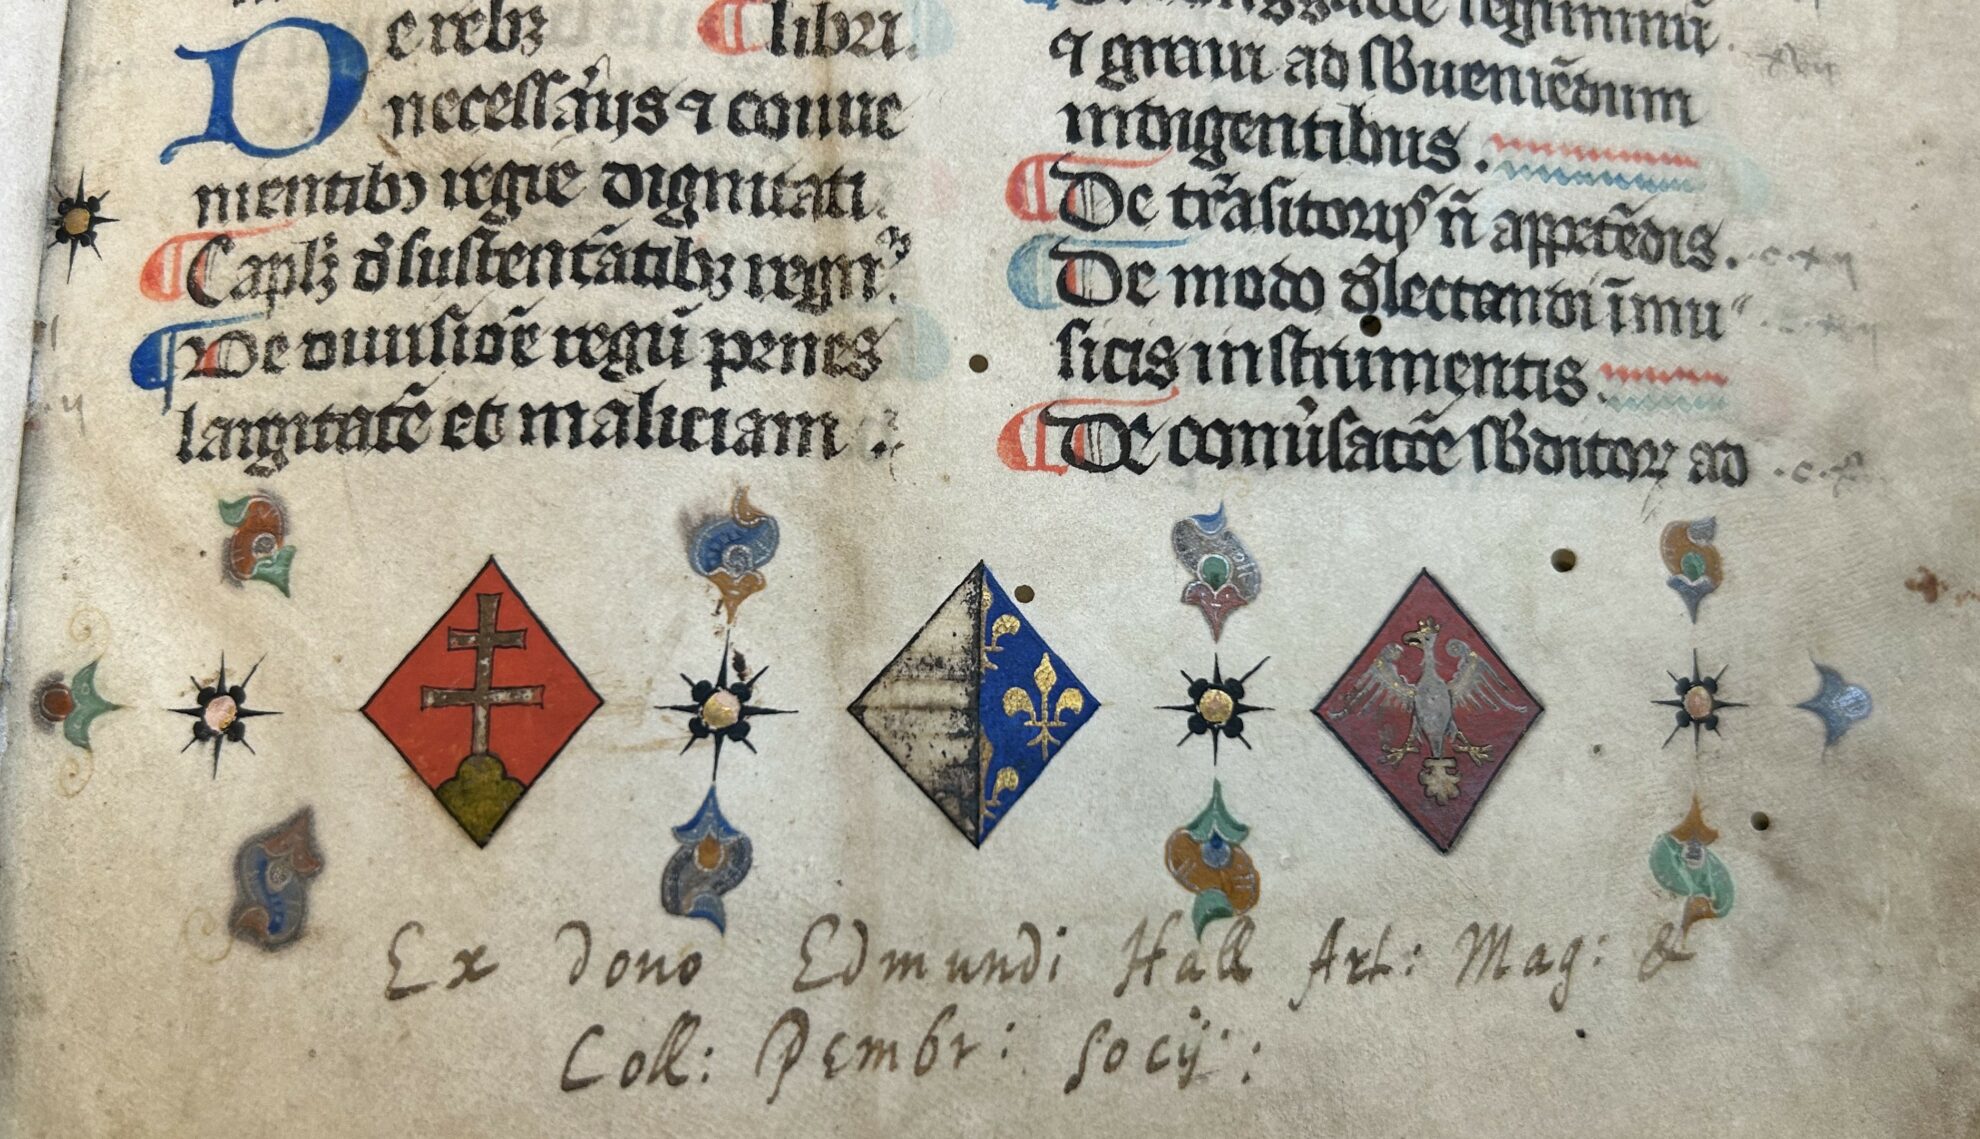 De rebꝫ ¶ libri.
necessarijs ⁊ conue
nientibꝫ regie dignitati.
¶ Caplꝫ d̓ sustentātibꝫ regnꝫ.
¶ De diuisiōe regū penes
largitatē et maliciam.
⁊ graui ad sbueniēdum
indigentibus.
¶ De trāsitorijs nō appetēdis.
¶ De modo d̓lectandi ī mu
sicis instrumentis.
¶ De conu̓satōe sbditorꝝ ad
Ex dono Edmundi Hall Art: Mag: &
Coll: Pembr: Socij: